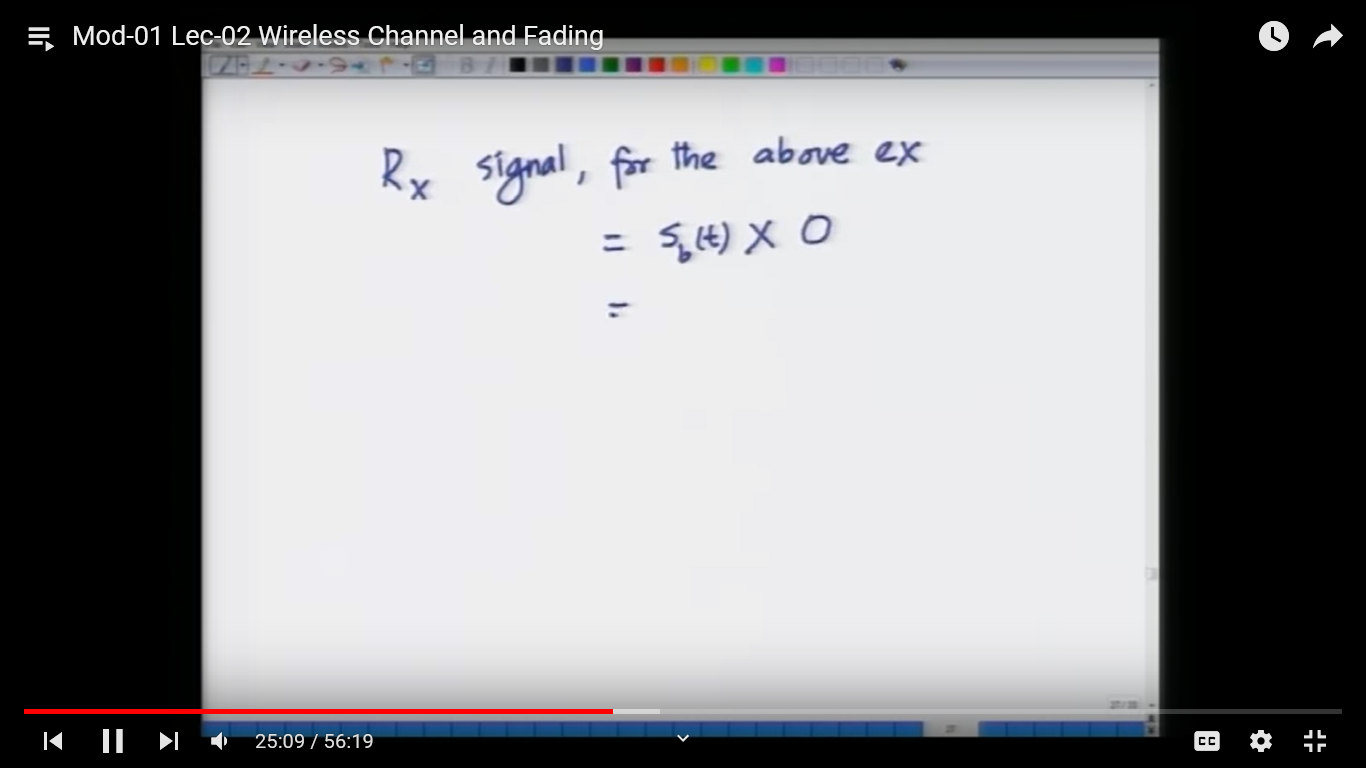 Mod-01 Lec-02 Wireless Channel and Fading
B I
Rx signal, for the above ex
= Sb(t) X 0
=
25:09 / 56:19
CC